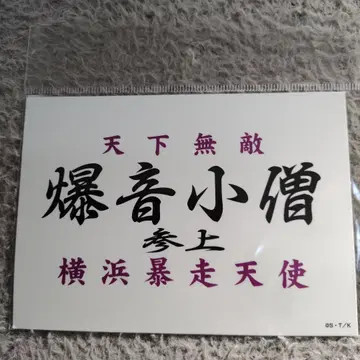 天下無敵
爆音小僧
参上
横浜暴走天使
05-T/K